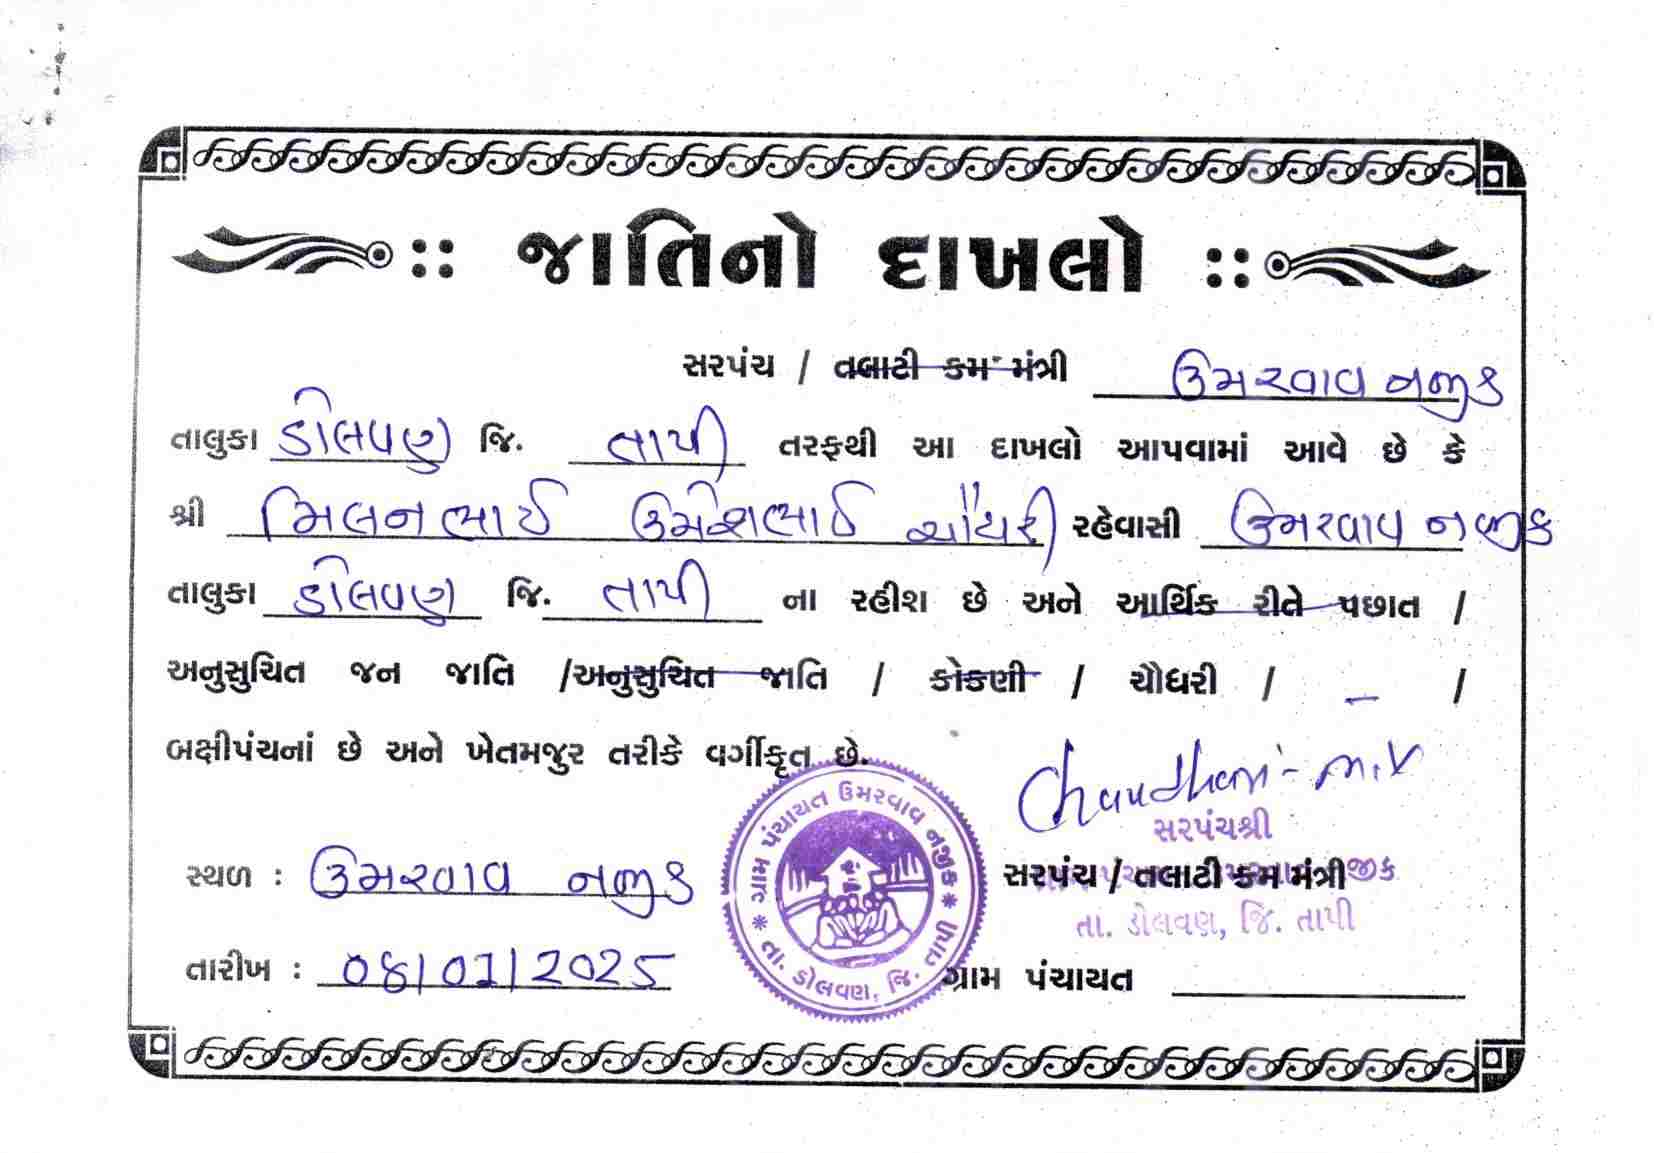 :: જાતિનો દાખલો ::
સરપંચ / તલાટી કમ મંત્રી ઉમરવાવ નજીક
તાલુકા ડોલવણ જિ. તાપી તરફથી આ દાખલો આપવામાં આવે છે કે
શ્રી મિલનભાઈ ઉમેશભાઈ ચૌધરી રહેવાસી ઉમરવાવ નજીક
તાલુકા ડોલવણ જિ. તાપી ના રહીશ છે અને આર્થિક રીતે પછાત /
અનુસુચિત જન જાતિ /અનુસુચિત જાતિ / કોકણી / ચૌધરી / - /
બક્ષીપંચનાં છે અને ખેતમજુર તરીકે વર્ગીકૃત છે.
Chaudhari - M.V
સરપંચશ્રી
સ્થળ : ઉમરવાવ નજીક
સરપંચ / તલાટી કમ મંત્રી
તા. ડોલવણ, જિ. તાપી
તારીખ : 08/01/2025
ગ્રામ પંચાયત
ગ્રામ પંચાયત ઉમરવાવ નજીક * તા. ડોલવણ, જિ. તાપી *